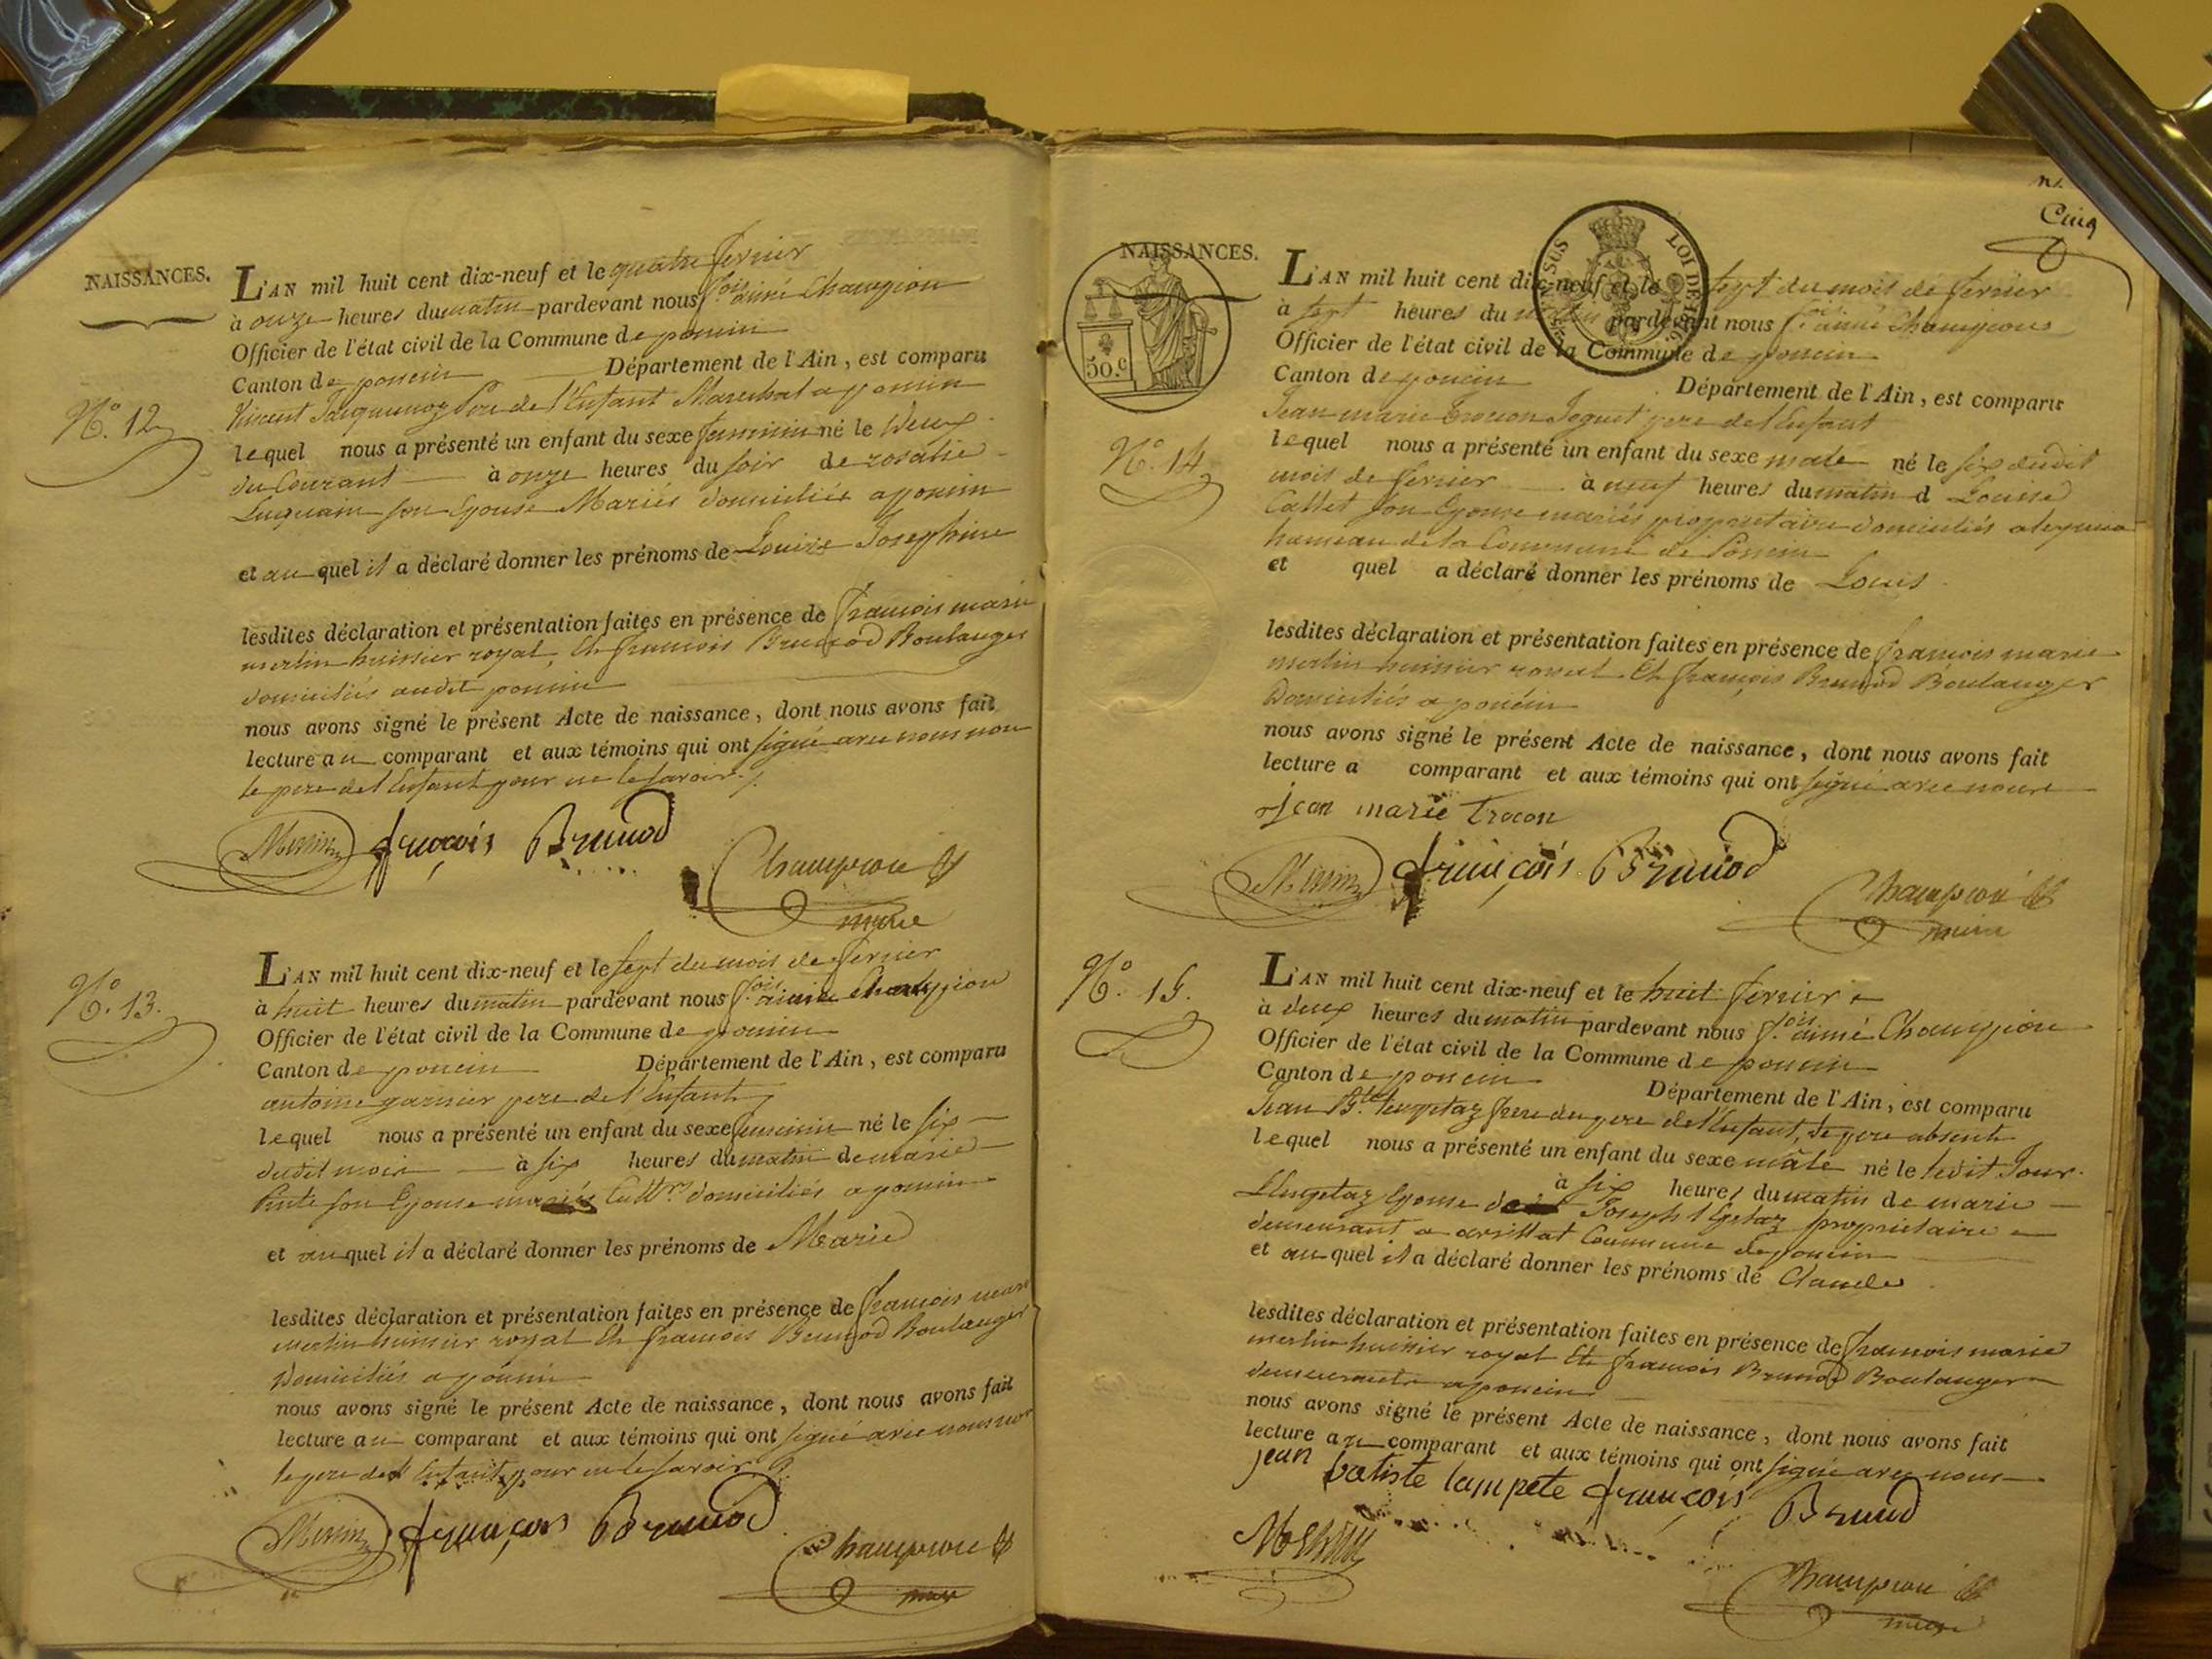 NAISSANCES.
L'AN mil huit cent dix-neuf et le quatre fevrier
à onze heures du matin pardevant nous f.ois aimé Champion
Officier de l'état civil de la Commune de poncin
Canton de poncin Département de l'Ain, est comparu
Vincent pere de l'Enfant Marechal a poncin
lequel nous a présenté un enfant du sexe feminin né le Deux
du Courant à onze heures du soir de rosalie
son Epouse Mariés domiciliés a poncin
et au quel il a déclaré donner les prénoms de Louise Josephine
lesdites déclaration et présentation faites en présence de francois marie
merlin huissier royal, Et francois Brunod Boulanger
domiciliés audit poncin
nous avons signé le présent Acte de naissance, dont nous avons fait
lecture au comparant et aux témoins qui ont signé avec nous non
le pere de l'Enfant pour ne le savoir.
N.o 12
Merlin françois Brunod
Champion
maire
N.o 13.
L'AN mil huit cent dix-neuf et le sept du mois de fevrier
à huit heures du matin pardevant nous f.ois aimé Champion
Officier de l'état civil de la Commune de poncin
Canton de poncin Département de l'Ain, est comparu
antoine garnier pere de l'Enfant
lequel nous a présenté un enfant du sexe feminin né le six
dudit mois à six heures du matin de marie
son Epouse mariés Cult.rs domiciliés a poncin
et au quel il a déclaré donner les prénoms de Marie
lesdites déclaration et présentation faites en présence de francois marie
merlin huissier royal Et francois Brunod Boulanger
Domiciliés a poncin
nous avons signé le présent Acte de naissance, dont nous avons fait
lecture au comparant et aux témoins qui ont signé avec nous non
le pere de l'Enfant pour ne le savoir
Merlin françois Brunod
Champion
maire
Cinq
NAISSANCES.
50.c
L'AN mil huit cent dix-neuf et le sept du mois de fevrier
à sept heures du matin pardevant nous f.ois aimé Champion
Officier de l'état civil de la Commune de poncin
Canton de poncin Département de l'Ain, est comparu
Jean marie Trocon Joguet pere de l'Enfant
lequel nous a présenté un enfant du sexe male né le six dudit
mois de fevrier à neuf heures du matin d Louise
Callet son Epouse mariés proprietaire domiciliés
hameau de la Commune de Poncin
et quel a déclaré donner les prénoms de Louis
lesdites déclaration et présentation faites en présence de francois marie
merlin huissier royal Et françois Brunod Boulanger
Domiciliés a poncin
nous avons signé le présent Acte de naissance, dont nous avons fait
lecture a comparant et aux témoins qui ont signé avec nous
N.o 14
jean marie Trocon
Merlin françois Brunod
Champion
maire
N.o 15.
L'AN mil huit cent dix-neuf et le huit fevrier
à deux heures du matin pardevant nous f.ois aimé Champion
Officier de l'état civil de la Commune de poncin
Canton de poncin Département de l'Ain, est comparu
Jean B.te frere du pere de l'Enfant, le pere absent
lequel nous a présenté un enfant du sexe mâle né le dit Jour
à six heures du matin de marie
Epouse de Joseph propriétaire
demeurant a Commune de poncin
et au quel il a déclaré donner les prénoms de Claude
lesdites déclaration et présentation faites en présence de francois marie
merlin huissier royal Et francois Brunod Boulanger
demeurants a poncin
nous avons signé le présent Acte de naissance, dont nous avons fait
lecture au comparant et aux témoins qui ont signé avec nous
jean batiste lampete françois Brunod
Merlin
Champion
maire